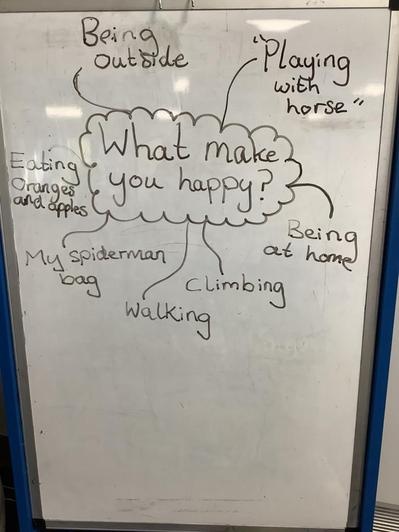 Being
outside
"Playing
with
horse"
What make
you happy?
Eating
oranges
and apples
Being
at home
My spiderman
bag
Climbing
Walking